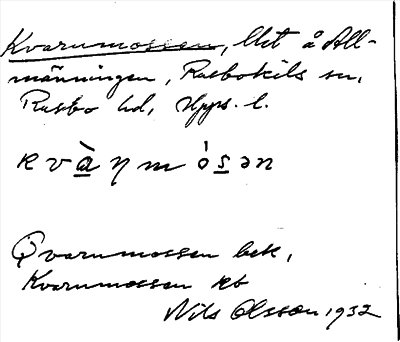 Kvarnmossen, lht å All-
männingen, Rasbokils sn,
Rasbo hd, Upps. l.
kvὰηmósən
Qvarnmossen bek,
Kvarnmossen kb
Nils Olsson 1932